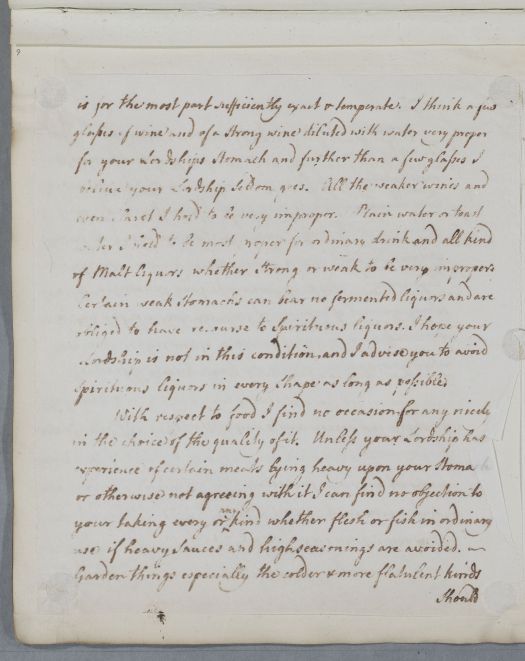 is for the most part sufficiently exact & temperate. I think a few
glasses of wine and of a strong wine diluted with water very proper
for your Lordships Stomach and further than a few glasses I
believe your Lordship Seldom goes. All the weaker wines and
even Claret I hold to be very improper. Plain water or toast
water I hold to be most proper for ordinary drink and all kind
of Malt liquors whether strong or weak to be very improper.
Certain weak Stomachs can bear no fermented liquors and are
obliged to have recourse to Spirituous liquors. I hope your
Lordship is not in this condition, and I advise you to avoid
Spirituous liquors in every shape as long as possible.
With respect to food I find no occasion for any nicety
in the choice of the quality of it. Unless your Lordship has
experience of certain meats lying heavy upon your Stomach
or otherwise not agreeing with it I can find no objection to
your taking every or any kind whether flesh or fish in ordinary
use if heavy sauces and high seasonings are avoided. —
Garden things especially the colder & more flatulent kinds
Should